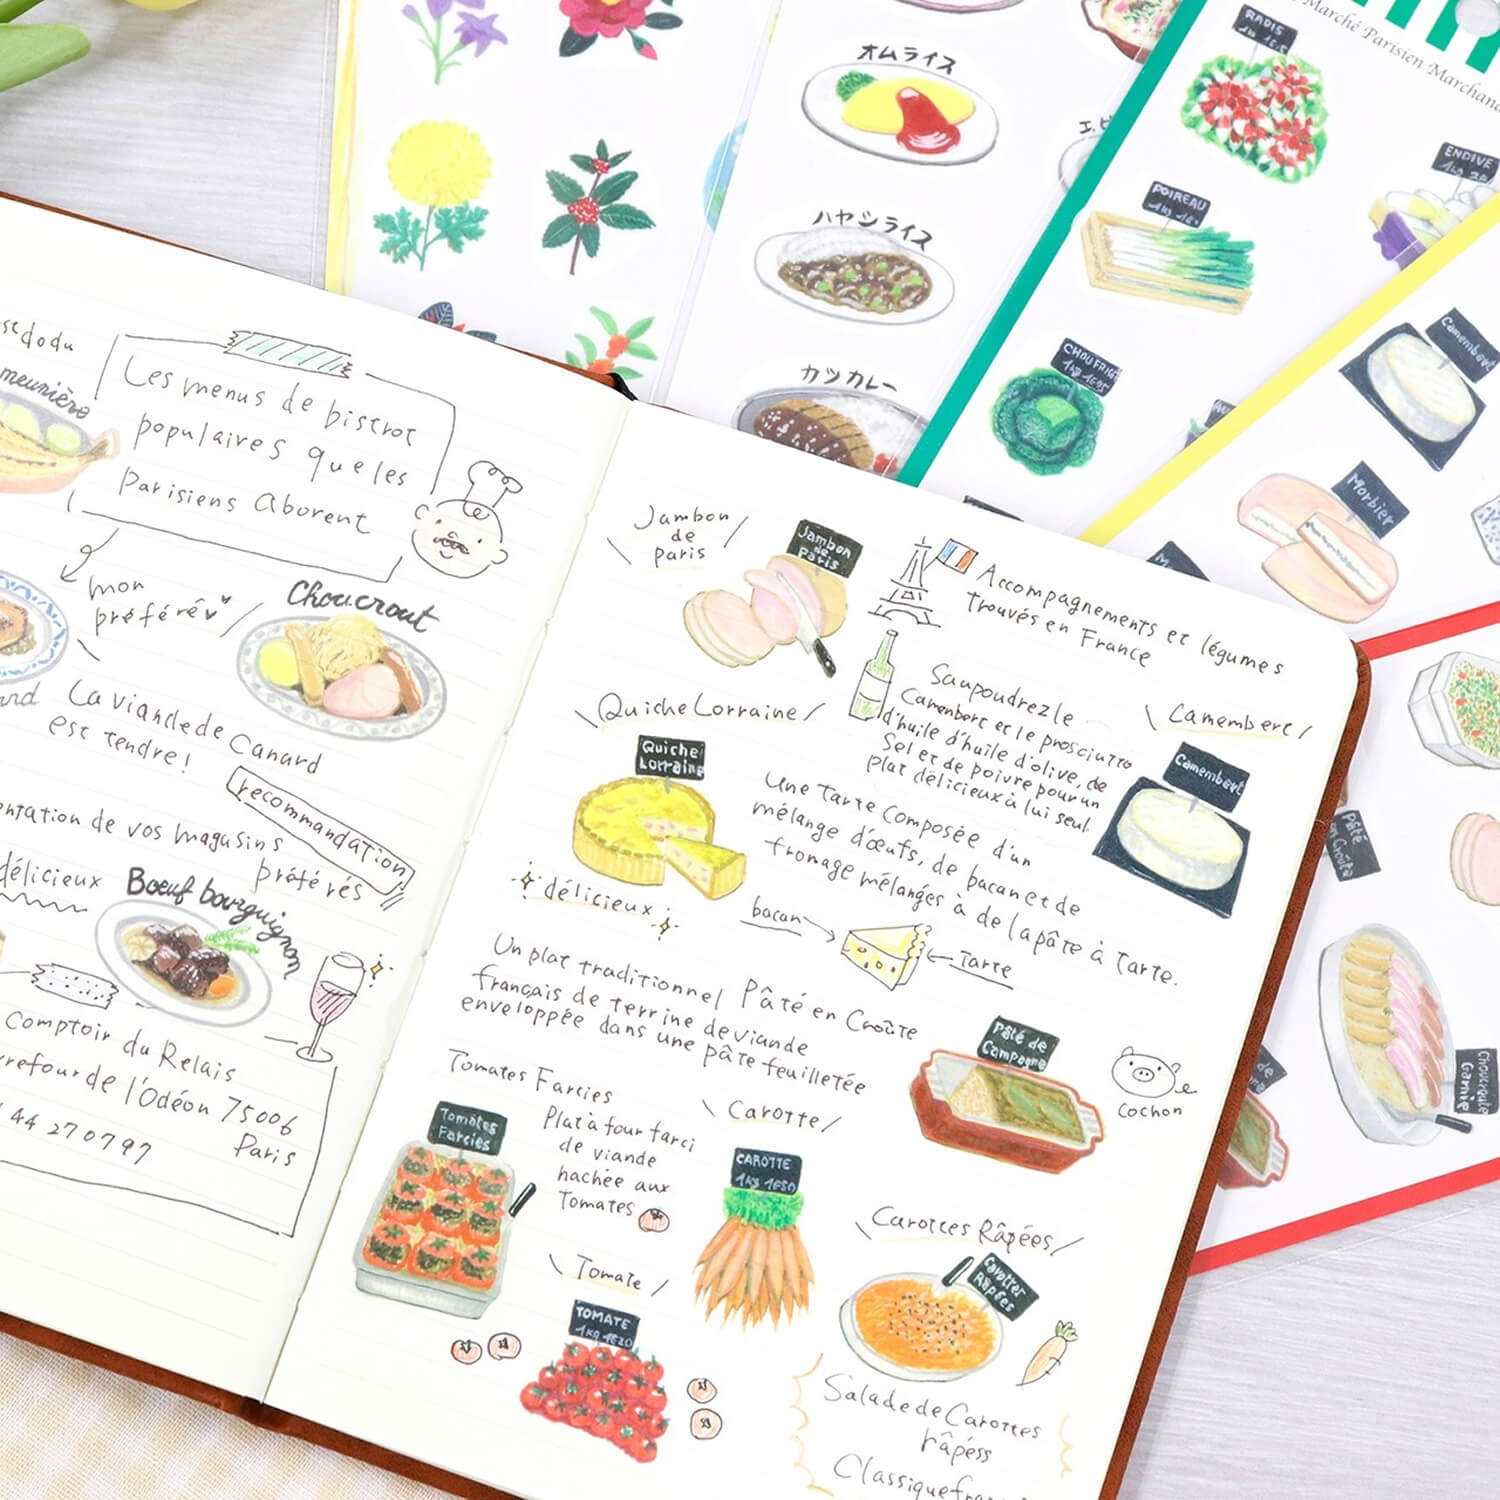 meunière
Les menus de bistrot
populaires que les
Parisiens aborent
mon
préféré
Choucrout
La viande de Canard
est tendre!
recommandation
de vos magasins
préférés
délicieux
Bœuf bourguignon
Comptoir du Relais
de l'Odéon 75006
Paris
44 27 07 97
Jambon
de
Paris
Jambon
de
Paris
Accompagnements et légumes
Trouvés en France
Saupoudrez le
Camembert et le prosciutto
d'huile d'huile d'olive, de
Sel et de poivre pour un
plat délicieux à lui seul.
Camembert
Camembert
Quiche Lorraine
Quiche
Lorraine
délicieux
Une Tarte Composée d'un
mélange d'œufs, de bacan et de
fromage mélangés à de la pâte à Tarte.
bacan
Tarte
Un plat traditionnel
français de terrine de viande
enveloppée dans une pâte feuilletée
Pâté en Croûte
Pâté de
Campagne
cochon
Tomates Farcies
Plat à four farci
de viande
hachée aux
Tomates
Tomates
Farcies
Carotte
CAROTTE
1kg 1€50
Tomate
TOMATE
1kg 1€20
Carottes Râpées
Carottes
Râpées
Salade de Carottes
râpéss
Classique
オムライス
ハヤシライス
カツカレー
エビ
Marché Parisien
RADIS
ENDIVE
POIREAU
CHOU FRISÉ
Camembert
Morbier
Pâté
en Croûte
Choucroute
Garnie